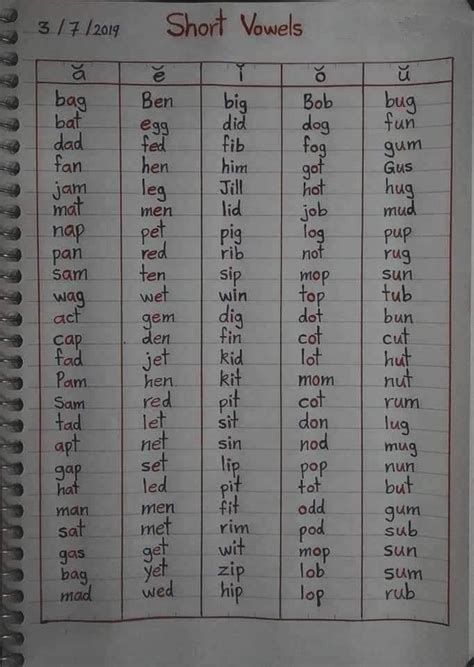 3/7/2019 Short Vowels
ă ĕ ĭ ŏ ŭ
bag Ben big Bob bug
bat egg did dog fun
dad fed fib fog gum
fan hen him got Gus
jam leg Jill hot hug
mat men lid job mud
nap pet pig log pup
pan red rib not rug
sam ten sip mop sun
wag wet win top tub
act gem dig dot bun
cap den fin cot cut
fad jet kid lot hut
Pam hen kit mom nut
Sam red pit cot rum
tad let sit don lug
apt net sin nod mug
gap set lip pop nun
hat led pit tot but
man men fit odd gum
sat met rim pod sub
gas get wit mop sun
bag yet zip lob sum
mad wed hip lop rub